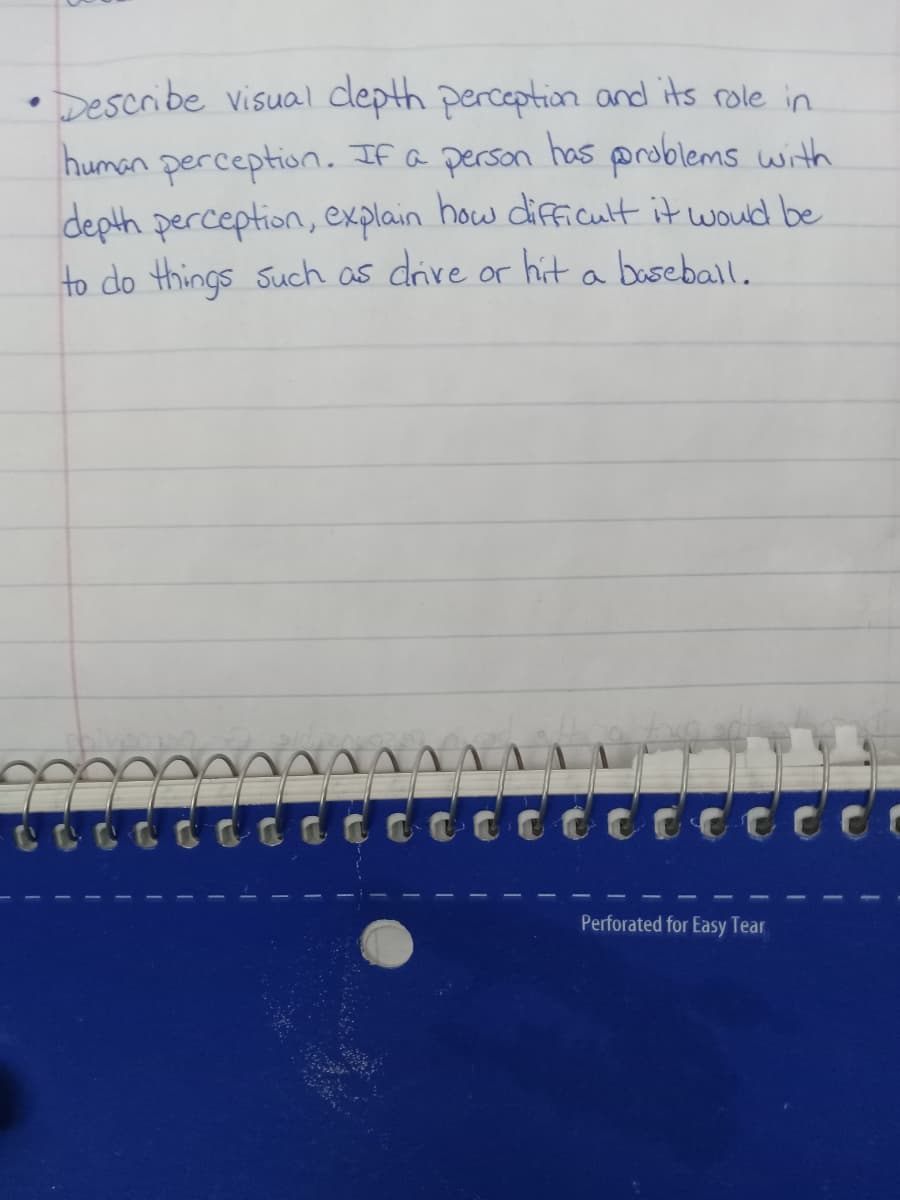 • Describe visual depth perception and its role in
human perception. If a person has problems with
depth perception, explain how difficult it would be
to do things such as drive or hit a baseball.
Perforated for Easy Tear